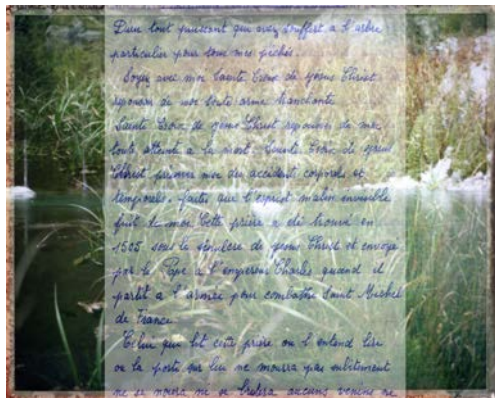 Dieu tout puissant qui avez souffert a l'arbre
particulier pour tous mes péchés.
Soyez avec moi Sainte Croix de Jesus Christ
repousser de moi toute arme tranchante
Sainte Croix de Jesus Christ repousser de moi
toute atteint a la mort. Sainte Croix de Jesus
Christ preserve moi des accidents corporels et
temporels, faites que l'esprit malin invisible
fuit de moi. Cette prière a été trouvé en
1505 sous le sépulcre de Jesus Christ et envoyé
par le Pape a l'empereur Charles quand il
partit a l'armée pour combattre Saint Michel
de France.
Celui qui lit cette prière ou l'entend lire
ou la porte sur lui ne mourra pas subitement
ne se noiera ni se brulera aucuns venins ne